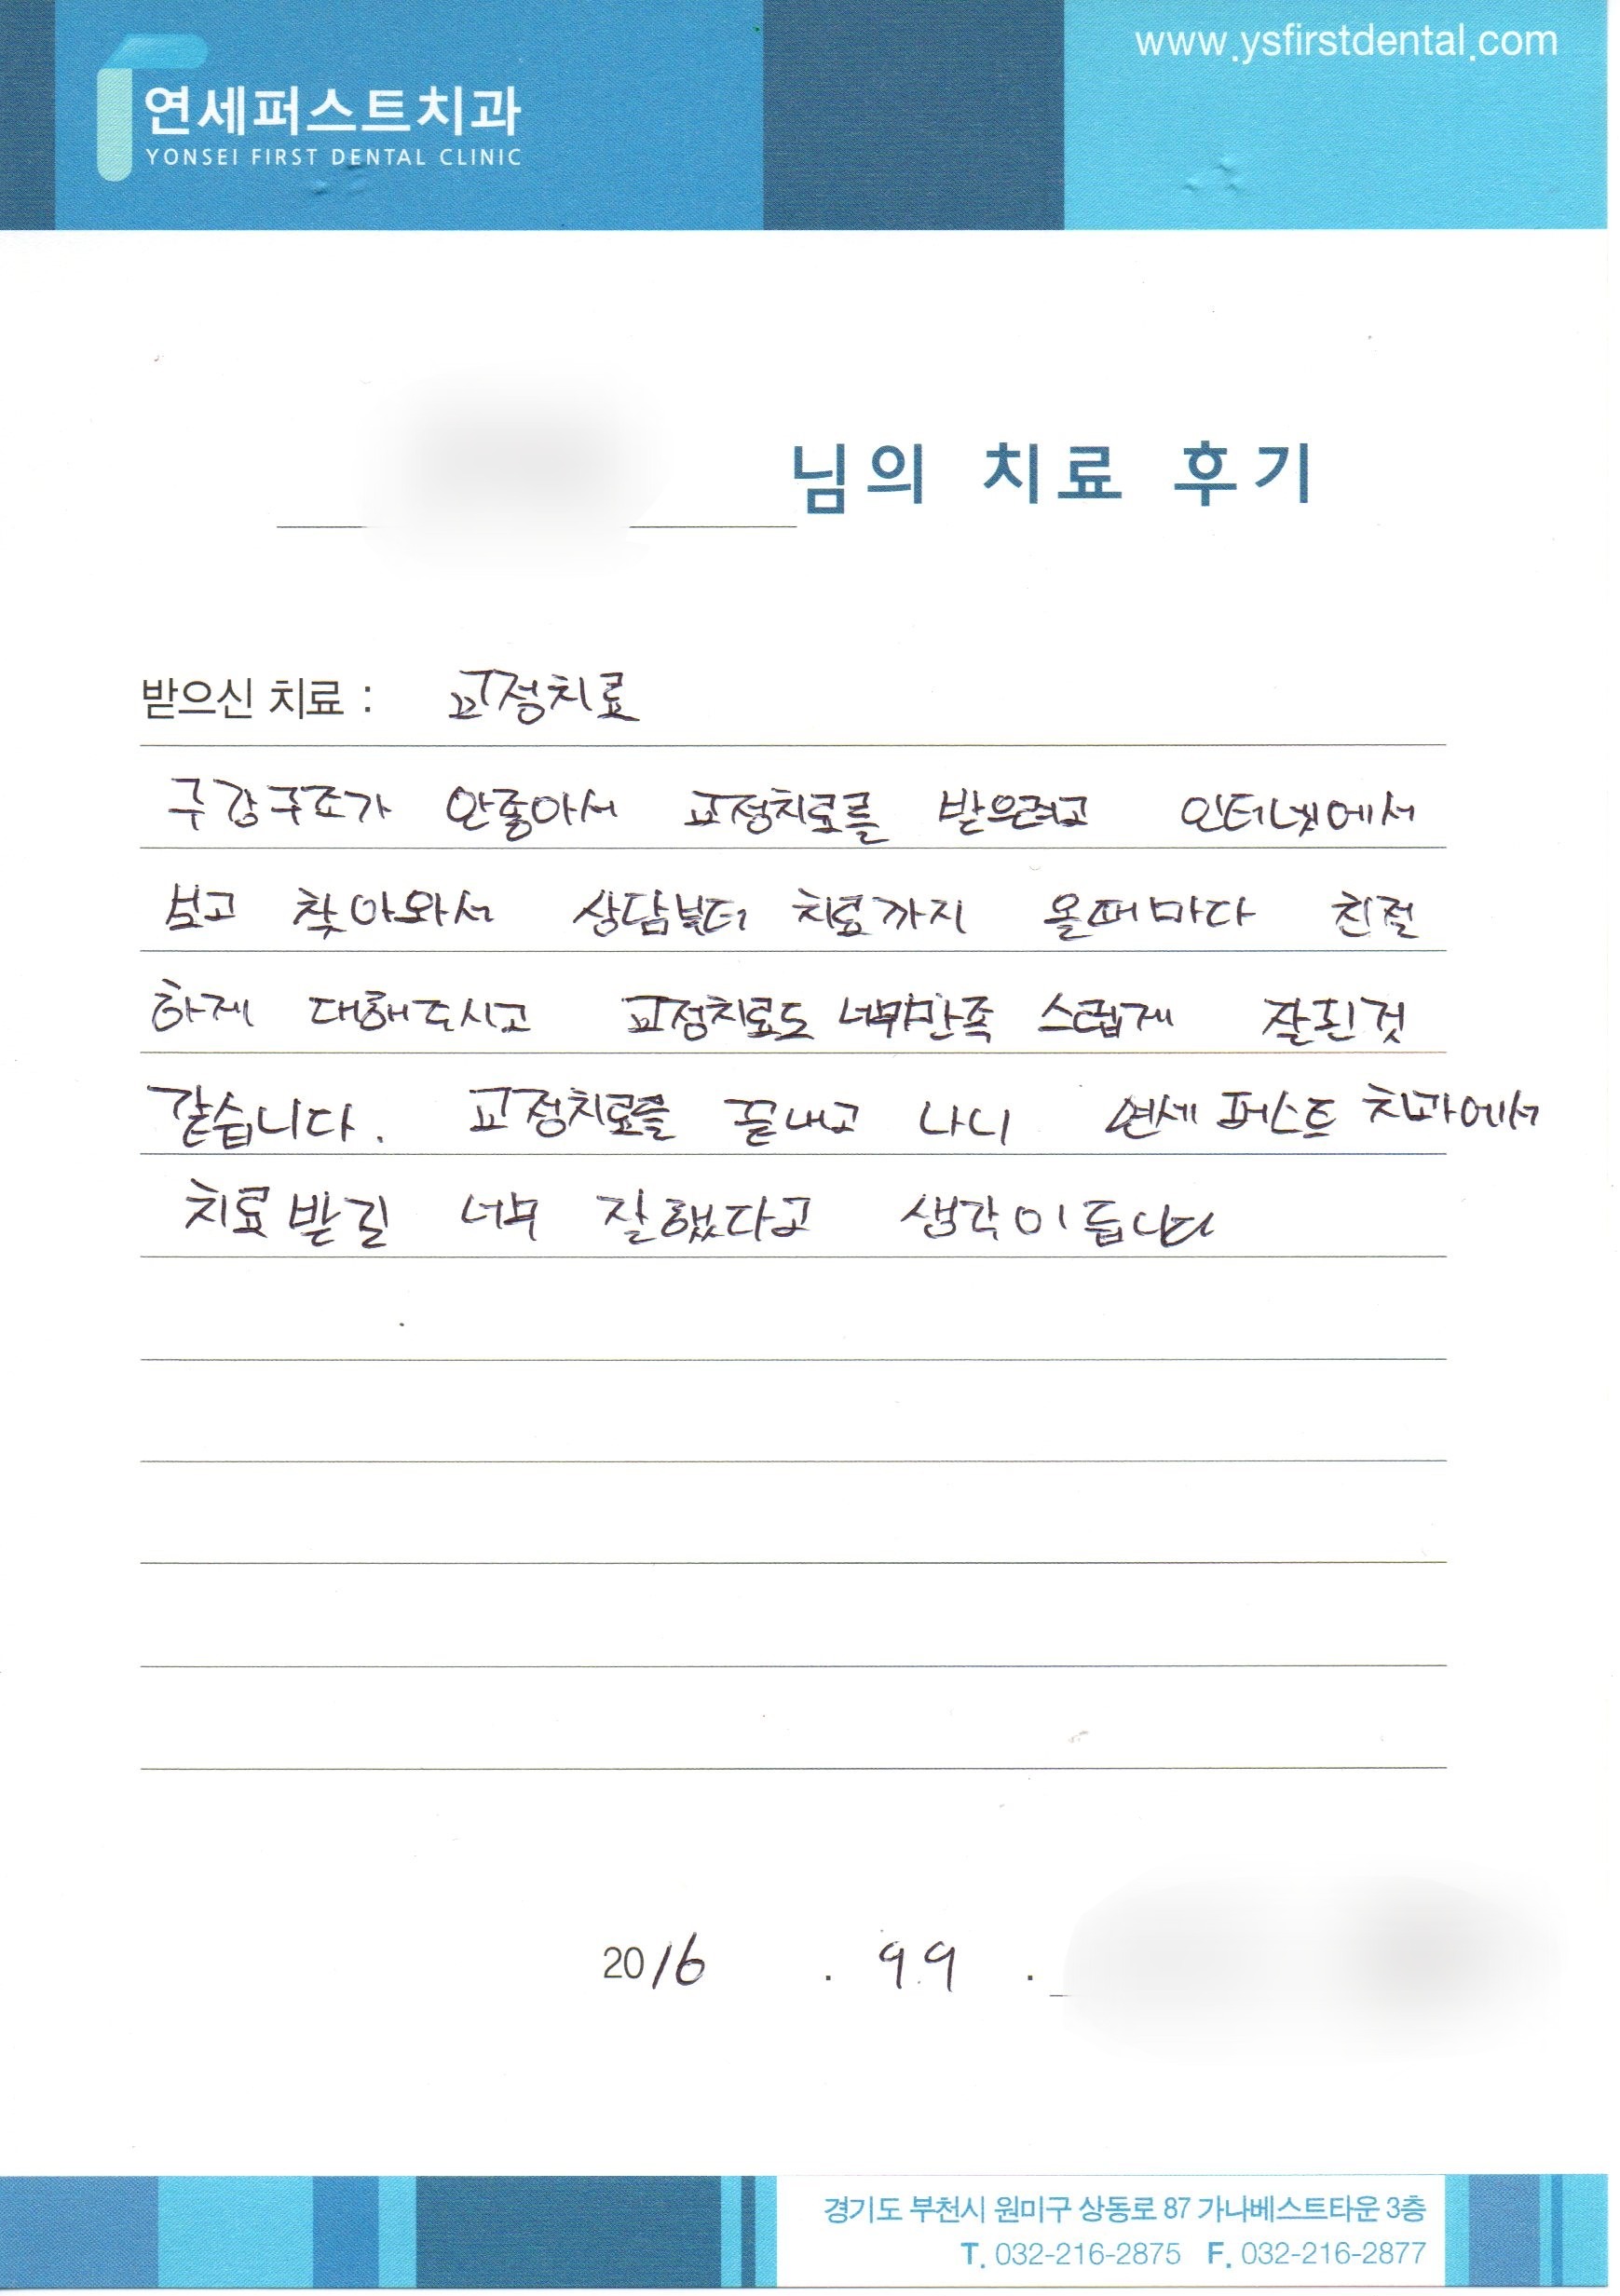 www.ysfirstdental.com
연세퍼스트치과
YONSEI FIRST DENTAL CLINIC
님의 치료 후기
받으신 치료 : 교정치료
구강구조가 안좋아서 교정치료를 받으려고 인터넷에서
보고 찾아와서 상담부터 치료까지 올때마다 친절
하게 대해주시고 교정치료도 너무만족 스럽게 잘된것
같습니다. 교정치료를 끝내고 나니 연세 퍼스트 치과에서
치료받길 너무 잘했다고 생각이듭니다
2016 . 9.9 .
경기도 부천시 원미구 상동로 87 가나베스트타운 3층
T. 032-216-2875 F. 032-216-2877